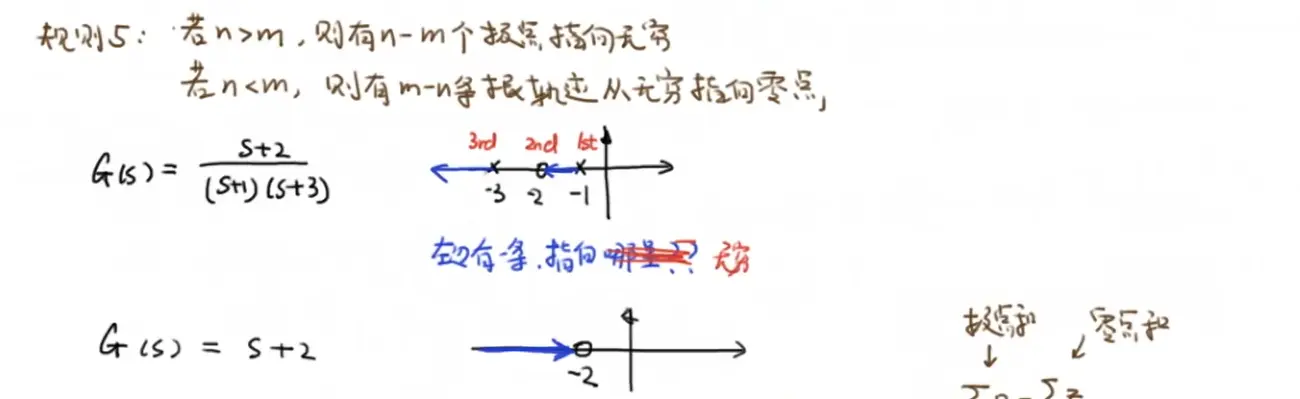 规则5: 若n>m,则有n-m个极点指向无穷
若n<m,则有m-n条根轨迹从无穷指向零点,
G(s)= s+2 / (s+1)(s+3)
3rd 2nd 1st
-3 -2 -1
左边有一条,指向 无穷
G(s) = s+2
-2
极点和 零点和
Σp-Σz